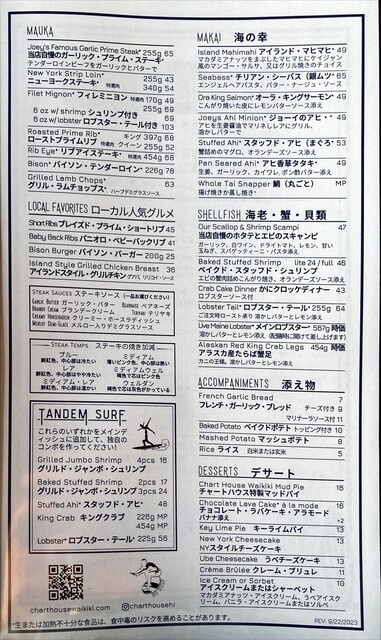 MAUKA
Joey's Famous Garlic Prime Steak* 255g 65
当店自慢のガーリック・プライム・ステーキ*
テンダーロインビーフをガーリックとバターで
New York Strip Loin* 255g 43
ニューヨークステーキ* 340g 54
Filet Mignon* フィレミニヨン 170g 49
255g 63
6 oz w/ shrimp シュリンプ付き 69
6 oz w/ lobster ロブスター・テール付き 103
Roasted Prime Rib* キング 397g 68
ローストプライムリブ クイーン 255g 52
Rib Eye* リブアイステーキ* 454g 68
Bison* バイソン・テンダーロイン* 228g 76
Grilled Lamb Chops* 63
グリル・ラムチョップス* ハーブデミグラスソース
LOCAL FAVORITES ローカル人気グルメ
Short Ribs ブレイズド・プライム・ショートリブ 45
Baby Back Ribs バニオロ・ベビーバックリブ 41
Bison Burger バイソン・バーガー 200g 25
Island Style Grilled Chicken Breast 36
アイランドスタイル・グリルチキン
STEAK SAUCES ステーキソース (一品お選びください)
GARLIC BUTTER ガーリック・バター BEARNAISE ベアネーズ
BRANDY CREAM ブランデークリーム TERIYAKI テリヤキ
CREAMY HORSERADISH クリーミー・ホースラディッシュ
MERLOT DEMI-GLACE メルロー入りデミグラスソース
STEAK TEMPS ステーキの焼き加減
ブルー
鮮紅色、中心部は冷たい
ミディアム
薄いピンク色、中心部は熱い
レア
鮮紅色、中心部はやや冷たい
ミディアムウェル
褐色で芯はピンク色
ミディアム・レア
鮮紅色、中心部が温かい
ウェルダン
褐色で芯は灰色がかっている
TANDEM SURF
これらのいずれかをメインディッシュに追加して、独自のコンボを作ってください!
Grilled Jumbo Shrimp 4pcs 16
グリルド・ジャンボ・シュリンプ
Baked Stuffed Shrimp 2pcs 17
グリルド・ジャンボ・シュリンプ 3pcs 24
Stuffed Ahi* スタッフド・アヒ* 48
King Crab キングクラブ 226g MP
454g MP
Lobster* ロブスター・テール* 225g 56
charthousewaikiki.com
charthousehi
MAKAI 海の幸
Island Mahimahi アイランド・マヒマヒ* 49
マカダミアナッツをまぶしたマヒマヒにケイジャン
風のマンゴー・サルサ、又はグリル焼きのチョイス
Seabass* チリアン・シーバス (銀ムツ)* 65
エンジェルヘアパスタ、バター・ナッツ・ソース添え
Ora King Salmon* オーラ・キングサーモン* 49
こんがり焼いた皮にレモンバターソース添え
Joeys Ahi Minion* ジョーイのアヒ・* 49
アヒを生姜醤油でマリネしレアにグリル、
溶かしバターで
Stuffed Ahi* スタッフド・アヒ (まぐろ)* 53
蟹詰めのマグロ、オランデーズソース添え
Pan Seared Ahi* アヒ香草タタキ* 49
生姜、ガーリック、カイワレ、ポン酢バター添え
Whole Tai Snapper 鯛 (丸ごと) MP
揚げ焼きか蒸し焼き*
SHELLFISH 海老・蟹・貝類
Our Scallop & Shrimp Scampi 47
当店自慢のホタテとエビのスキャンピ
ガーリック、白ワイン、ドライトマト、レモン、甘い
玉ねぎ、スパゲッティーニ・パスタ添え
Baked Stuffed Shrimp lite 24 / full 46
ベイクド・スタッフド・シュリンプ
エビの蟹肉詰めこんがり焼き、オランデーズソース添え
Crab Cake Dinner かにクロックディナー 43
ロブスターソース付
Lobster Tail* ロブスター・テール* 255g 64
ご注文時ロースト限り 溶かしバターとレモン添え
Live Maine Lobster* メインロブスター* 567g 時価
溶かしバターとレモン添え
Alaskan Red King Crab Legs 454g 時価
アラスカ産たらば蟹足
カニの王様。溶かしバターとレモン添え
ACCOMPANIMENTS 添え物
French Garlic Bread 7
フレンチ・ガーリック・ブレッド チーズ付き 9
マリナーラソース付 11
Baked Potato ベイクドポテト トッピング付き 10
Mashed Potato マッシュポテト 8
Rice ライス 白米または玄米 5
DESSERTS デザート
Chart House Waikiki Mud Pie 16
チャートハウス特製マッドパイ
Chocolate Lava Cake* à la mode 16
チョコレート・ラバケーキ・アラモード
バナナ添え +2
Key Lime Pie キーライムパイ 13
New York Cheesecake 13
NYスタイルチーズケーキ
Ube Cheesecake うべチーズケーキ 13
Crème Brûlée クレーム・ブリュレ 13
Ice Cream or Sorbet 10
アイスクリームまたはシャーベット
マカダミアナッツ・アイスクリーム、うべアイスク
リーム、バニラ・アイスクリームまたはソルベ
*生または加熱不十分な食品は、食中毒のリスクを高めることがあります。
REV: 9/22/2023